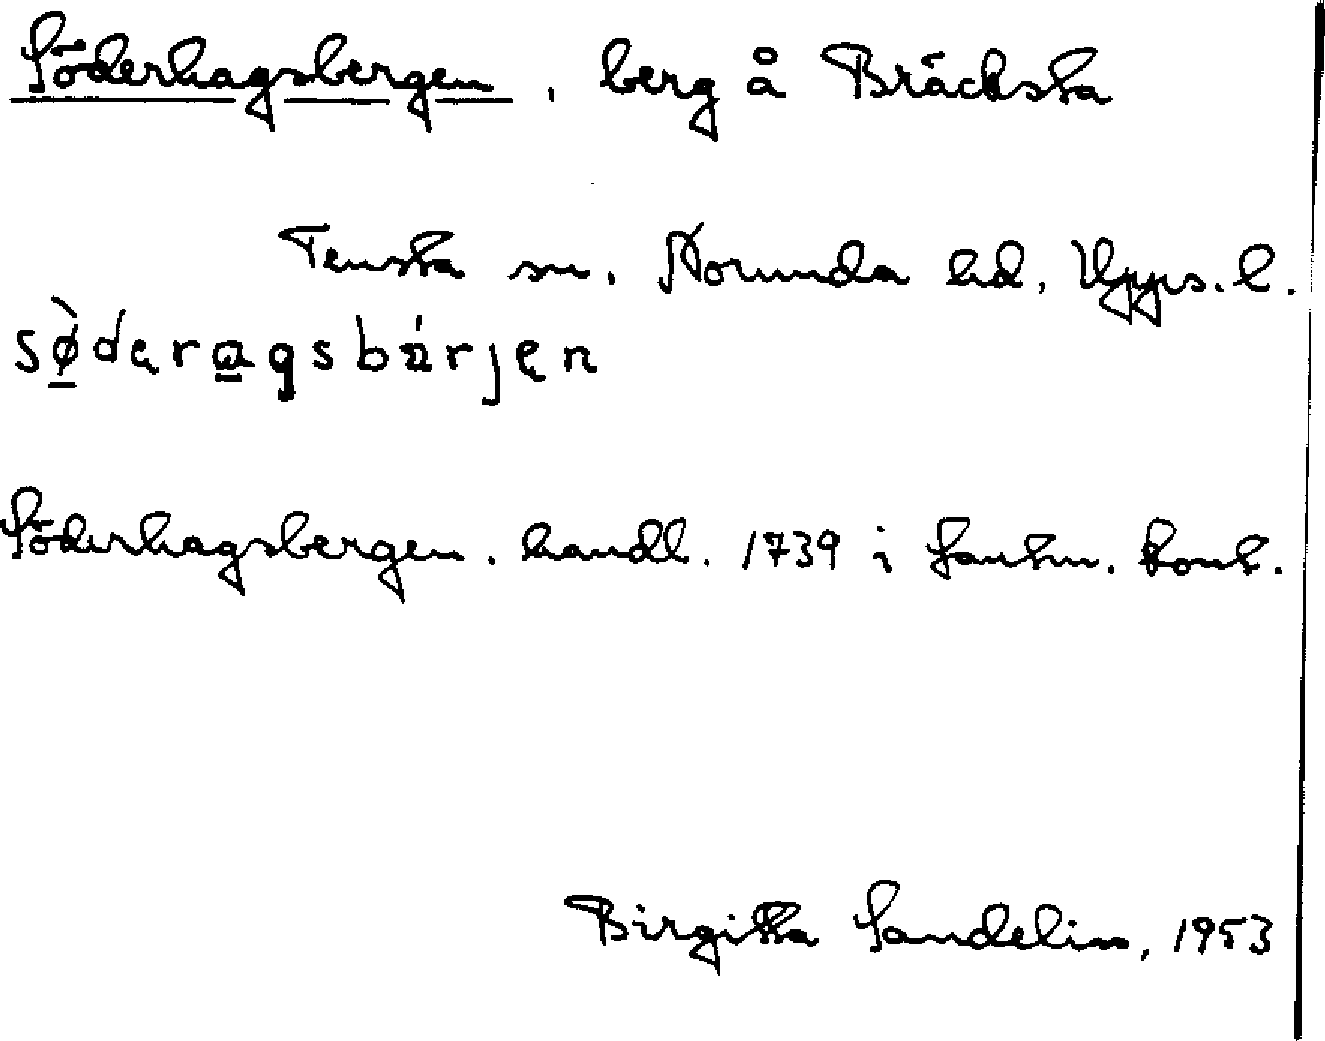 Söderhagsbergen, berg å Bräcksta
Tensta sn. Norunda hd, Upps. l.
sø̀deragsbä́rjen
Söderhagsbergen. handl. 1739 i Lantm. kont.
Birgitta Sandelin, 1953